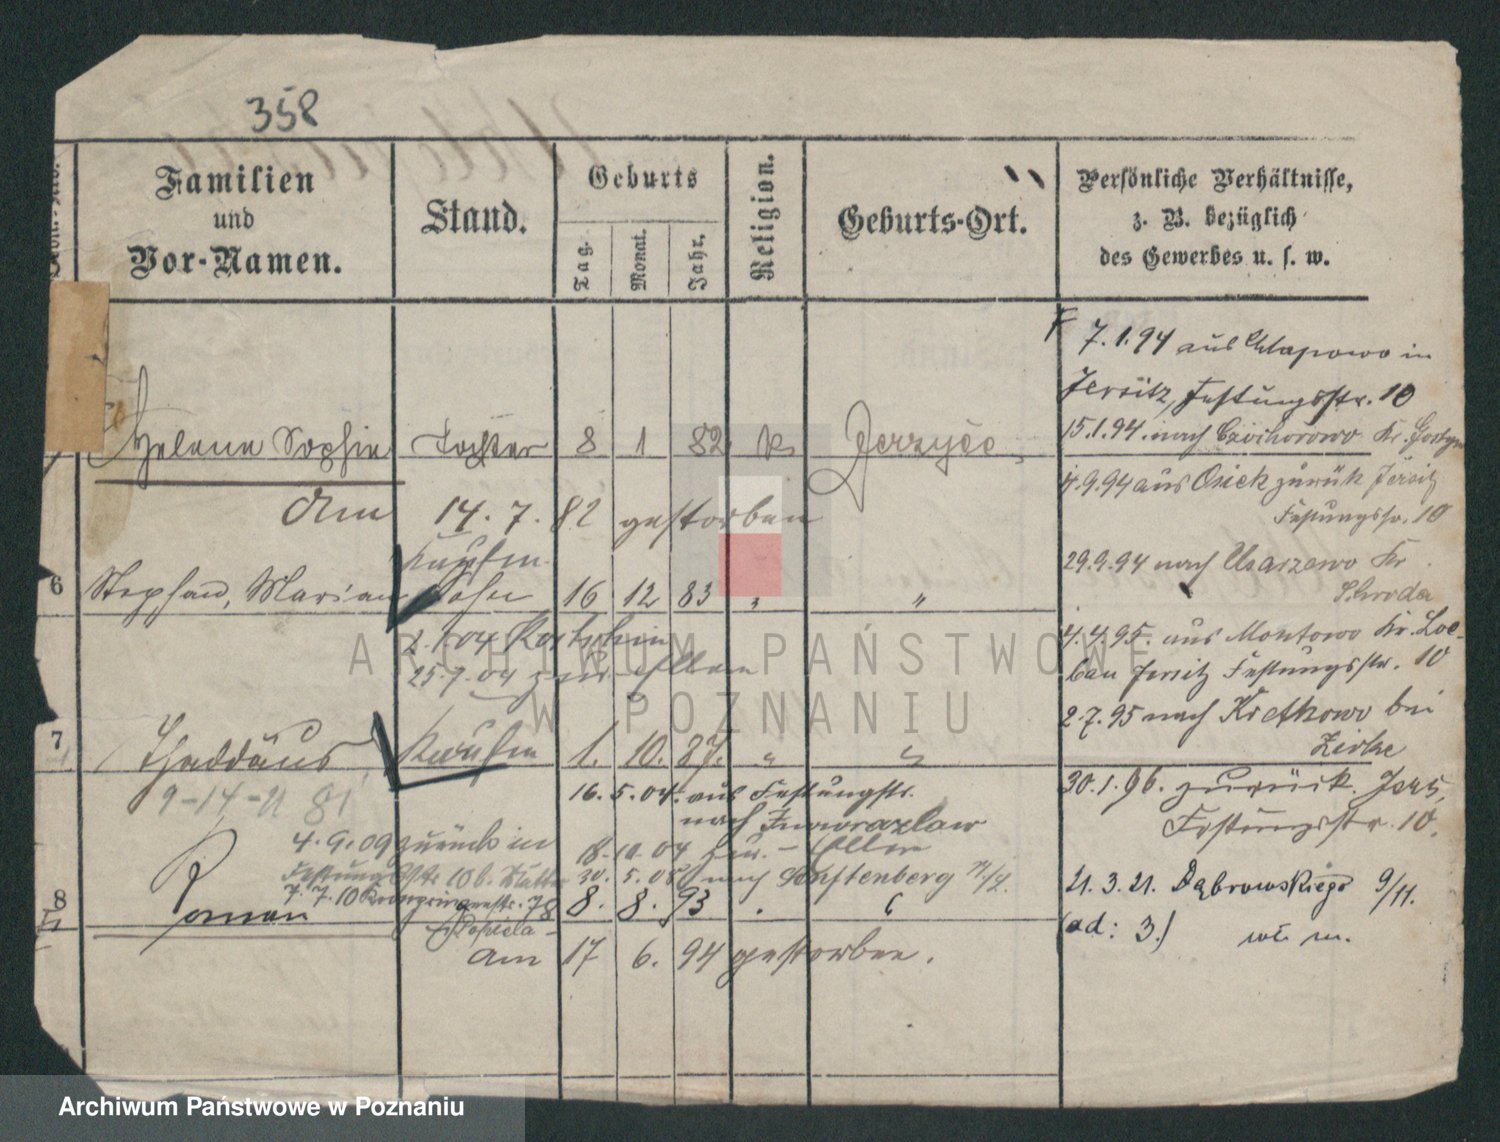 358
Familien
und
Vor-Namen.
Stand.
Geburts
Tag.
Monat.
Jahr.
Religion.
Geburts-Ort.
Persönliche Verhältnisse,
z. B. bezüglich
des Gewerbes u. s. w.
7.1.94 aus Chlapowo in
Jersitz, Festungsstr. 10
Helene Sophie Tochter 8 1 82 k. Jerzyce
15.1.94. nach Kr. Gostyn
am 14. 7. 82 gestorben
4.9.94 aus Osiek zurück Jersitz
Festungsstr. 10
Kaufm.
29.9.94 nach Kr.
Schroda
6 Stephan, Marian Sohn 16 12 83 " "
2.1.04 Kostschin
4.4.95. aus Montowo Kr. Loe-
25.7.04 zur Eltern
bau Jersitz Festungsstr. 10
2.7.95 nach Kretkowo bei
Zirke
7 Thaddäus Kaufm 1. 10. 87. " "
30.1.96. zurück. Jers,
Festungsstr. 10.
16.5.04. aus Festungstr.
nach Inowrazlaw
4.9.09 zurück in
18.10.04 zur. - Eltern
Festungsstr. 10 b. Mutter
30.5.08 nach Senftenberg N/L.
7.7.10 Kronprinzenstr. 78
8 Roman 8. 8. 93
21.3.21. Dąbrowskiego 9/11.
(ad: 3.)
am 17 6. 94 gestorben.
ARCHIWUM PAŃSTWOWE
W POZNANIU
Archiwum Państwowe w Poznaniu